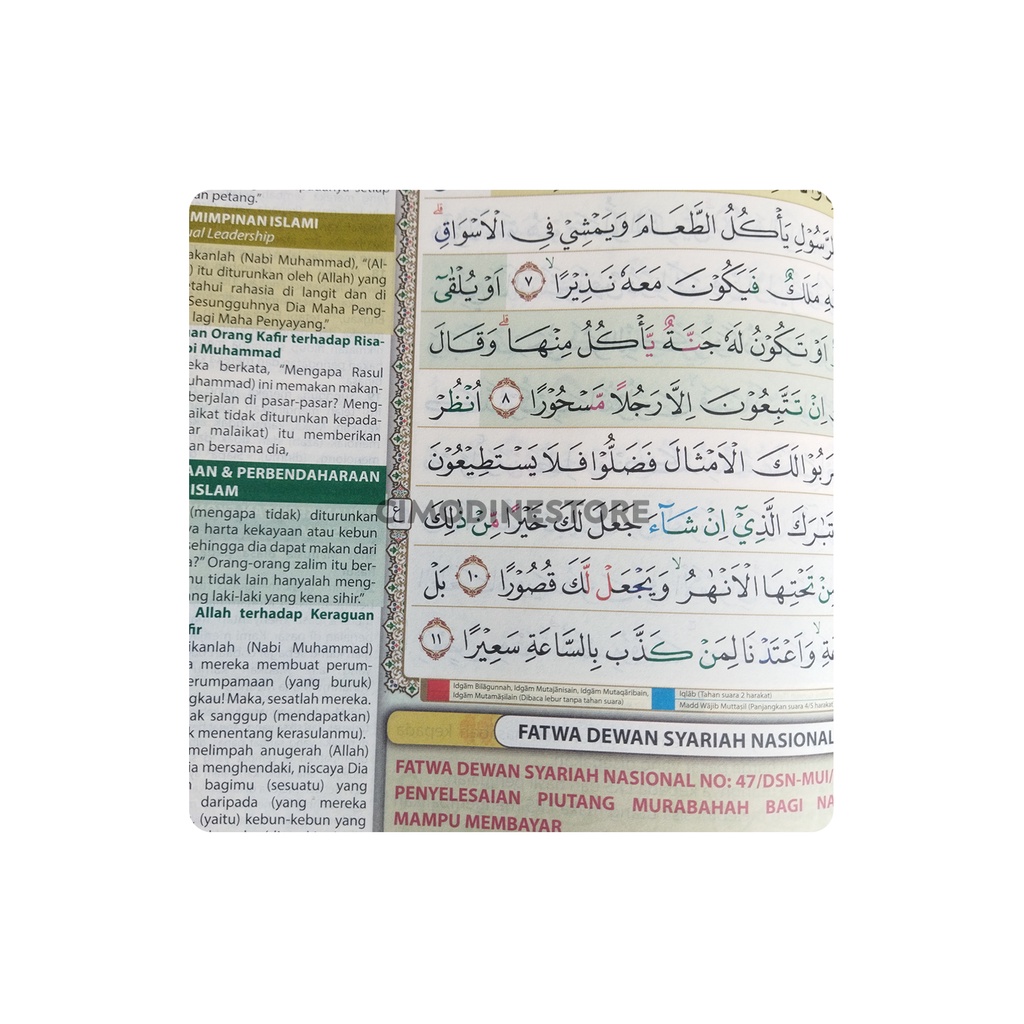 padanya setiap
an petang."
MIMPINAN ISLAMI
ual Leadership
akanlah (Nabi Muhammad), "(Al-
) itu diturunkan oleh (Allah) yang
etahui rahasia di langit dan di
Sesungguhnya Dia Maha Peng-
lagi Maha Penyayang."
an Orang Kafir terhadap Risa-
bi Muhammad
eka berkata, "Mengapa Rasul
uhammad) ini memakan makan-
berjalan di pasar-pasar? Meng-
laikat tidak diturunkan kepada-
ar malaikat) itu memberikan
an bersama dia,
AAN & PERBENDAHARAAN
ISLAM
(mengapa tidak) diturunkan
ya harta kekayaan atau kebun
sehingga dia dapat makan dari
a?" Orang-orang zalim itu ber-
mu tidak lain hanyalah meng-
ng laki-laki yang kena sihir."
Allah terhadap Keraguan
fir
ikanlah (Nabi Muhammad)
a mereka membuat perum-
erumpamaan (yang buruk)
gkau! Maka, sesatlah mereka.
ak sanggup (mendapatkan)
k menentang kerasulanmu).
melimpah anugerah (Allah)
ia menghendaki, niscaya Dia
n bagimu (sesuatu) yang
daripada (yang mereka
(yaitu) kebun-kebun yang
الرَّسُوْلِ يَأْكُلُ الطَّعَامَ وَيَمْشِيْ فِى الْاَسْوَاقِۗ
هِ مَلَكٌ فَيَكُوْنَ مَعَهٗ نَذِيْرًاۙ ٧ اَوْ يُلْقٰىٓ
اَوْ تَكُوْنُ لَهٗ جَنَّةٌ يَّأْكُلُ مِنْهَاۗ وَقَالَ
اِنْ تَتَّبِعُوْنَ اِلَّا رَجُلًا مَّسْحُوْرًا ٨ اُنْظُرْ
ضَرَبُوْا لَكَ الْاَمْثَالَ فَضَلُّوْا فَلَا يَسْتَطِيْعُوْنَ
تَبٰرَكَ الَّذِيْٓ اِنْ شَاۤءَ جَعَلَ لَكَ خَيْرًا مِّنْ ذٰلِكَ
مِنْ تَحْتِهَا الْاَنْهٰرُۙ وَيَجْعَلْ لَّكَ قُصُوْرًا ١٠ بَلْ
ةِۙ وَاَعْتَدْنَا لِمَنْ كَذَّبَ بِالسَّاعَةِ سَعِيْرًا ١١
ع
CIMODINESTORE
Idgām Bilāgunnah, Idgām Mutajānisain, Idgām Mutaqāribain,
Idgām Mutamāṡilain (Dibaca lebur tanpa tahan suara)
Iqlāb (Tahan suara 2 harakat)
Madd Wājib Muttasil (Panjangkan suara 4/5 harakat
FATWA DEWAN SYARIAH NASIONAL
FATWA DEWAN SYARIAH NASIONAL NO: 47/DSN-MUI/
PENYELESAIAN PIUTANG MURABAHAH BAGI NA
MAMPU MEMBAYAR